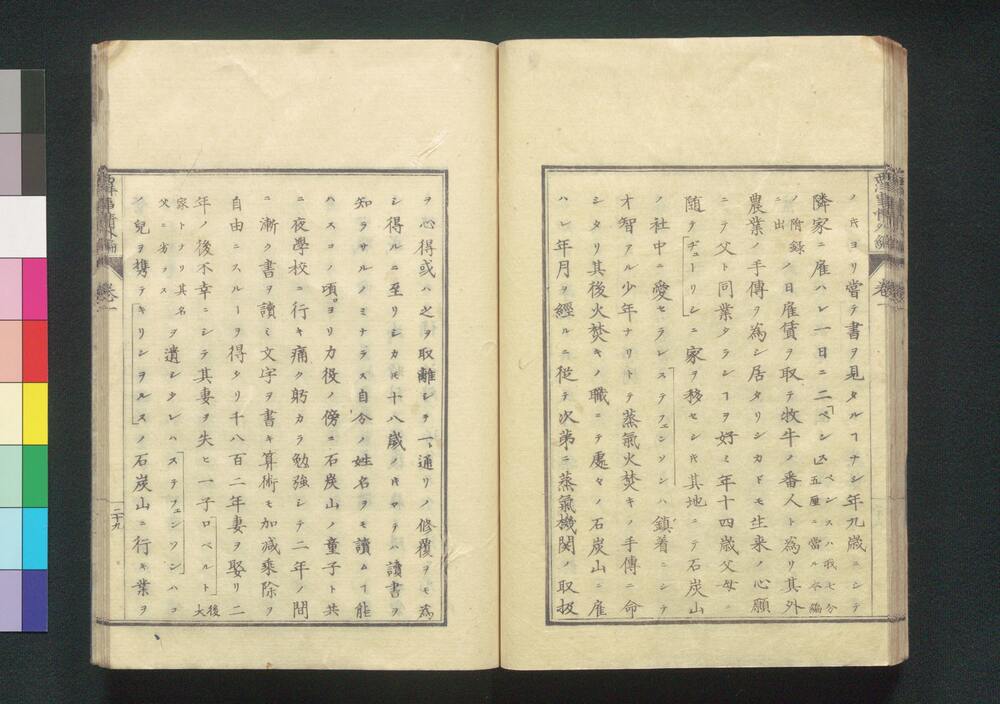 西洋事情外編 卷之一
ノ𪜈ヨリ嘗テ書ヲ見タルヿナシ年九歳ニシテ
隣家ニ雇ハレ一日ニ二ペンス ペンスハ我七分五厘ニ當ル本編
ノ附録ニ出ノ日雇賃ヲ取テ牧牛ノ番人ト為リ其外
農業ノ手傳ヲ為シ居タリシカドモ生来ノ心願
ニテ父ト同業タランヿヲ好ミ年十四歳父母ニ
随テヂューリンニ家ヲ移セシ𪜈其地ニテ石炭山
ノ社中ニ愛セラレステフェンソンハ鎮着ニシテ
才智アル少年ナリトテ蒸氣火焚キノ手傳ニ命
シタリ其後火焚キノ職ニテ處々ノ石炭山ニ雇
ハレ年月ヲ經ルニ從テ次第ニ蒸氣機関ノ取扱
ヲ心得或ハ之ヲ取離シテ一ト通リノ修覆ヲモ為
シ得ルニ至リシカ𪜈十八歳ノ𪜈マテハ讀書ヲ
知ラサルノミナラス自分ノ姓名ヲモ讀ムヿ能
ハスコノ頃ヨリ力役ノ傍ニ石炭山ノ童子ト共
ニ夜學校ニ行キ痛ク躬カラ勉強シテ二年ノ間
ニ漸ク書ヲ讀ミ文字ヲ書キ算術モ加減乘除ヲ
自由ニスルヿヲ得タリ千八百二年妻ヲ娶リ二
年ノ後不幸ニシテ其妻ヲ失ヒ一子ロベルト 後大
家トナリ其名父ニ劣ラスヲ遺シタレハステフェンソンハコ
ノ兒ヲ携テキリンヲルスノ石炭山ニ行キ業ヲ
西洋事情外編 卷之一
二十九